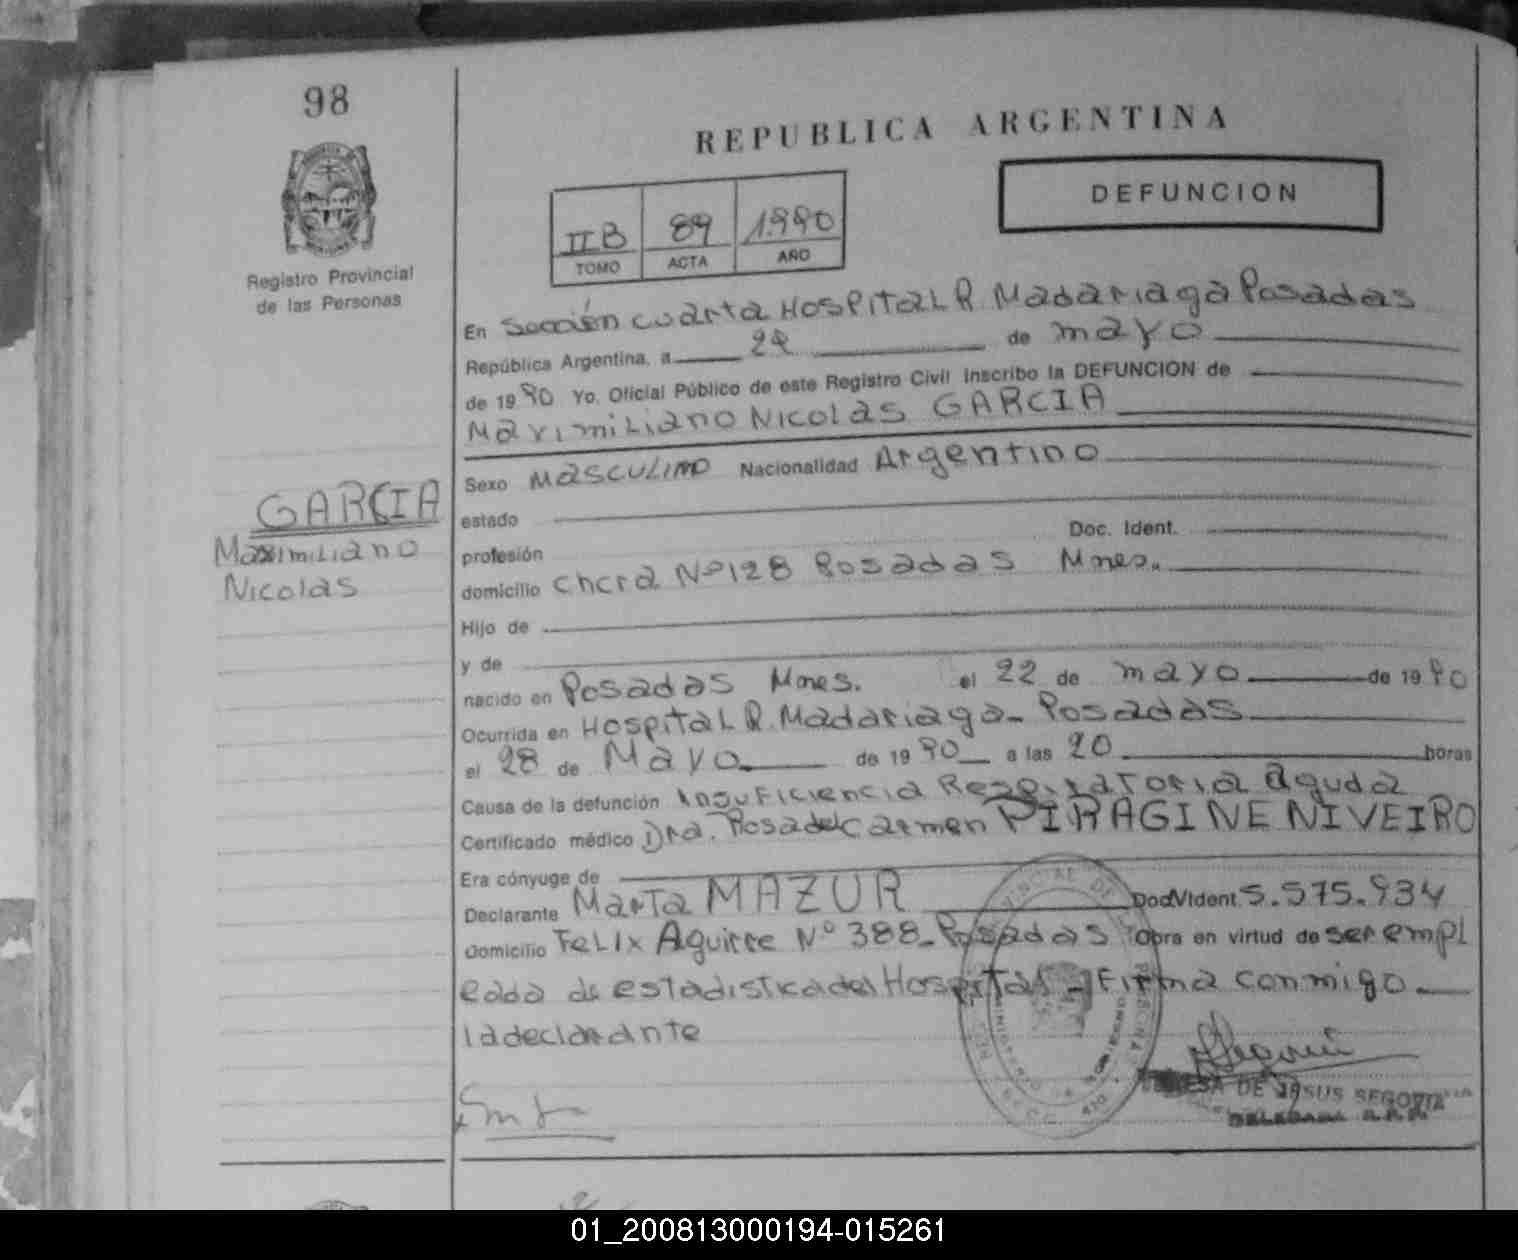 98
REPUBLICA ARGENTINA
DEFUNCION
IIB 89 1.990
TOMO ACTA AÑO
Registro Provincial
de las Personas
En Sección cuarta Hospital R. Madariaga Posadas
República Argentina, a 29 de mayo
de 1990 Yo, Oficial Público de este Registro Civil Inscribo la DEFUNCION de
Maximiliano Nicolas GARCIA
GARCIA
Maximiliano
Nicolas
Sexo MASCULINO Nacionalidad Argentino
estado
profesión Doc. Ident.
domicilio chcra Nº 128 Posadas Mnes.
Hijo de
y de
nacido en Posadas Mnes. el 22 de mayo de 1990
Ocurrida en Hospital R. Madariaga - Posadas
el 28 de Mayo de 1990 a las 20 horas
Causa de la defunción Insuficiencia Respiratoria Aguda
Certificado médico Dra. Rosa del Carmen PIRAGINE NIVEIRO
Era cónyuge de
Declarante Marta MAZUR Doc. Ident. 5.575.934
Domicilio Felix Aguirre Nº 388 - Posadas Obra en virtud de ser empl
eada de estadistica del Hospital - Firma conmigo
la declarante
TERESA DE JESUS SEGOVIA
DELEGADA R.P.P.
01_200813000194-015261